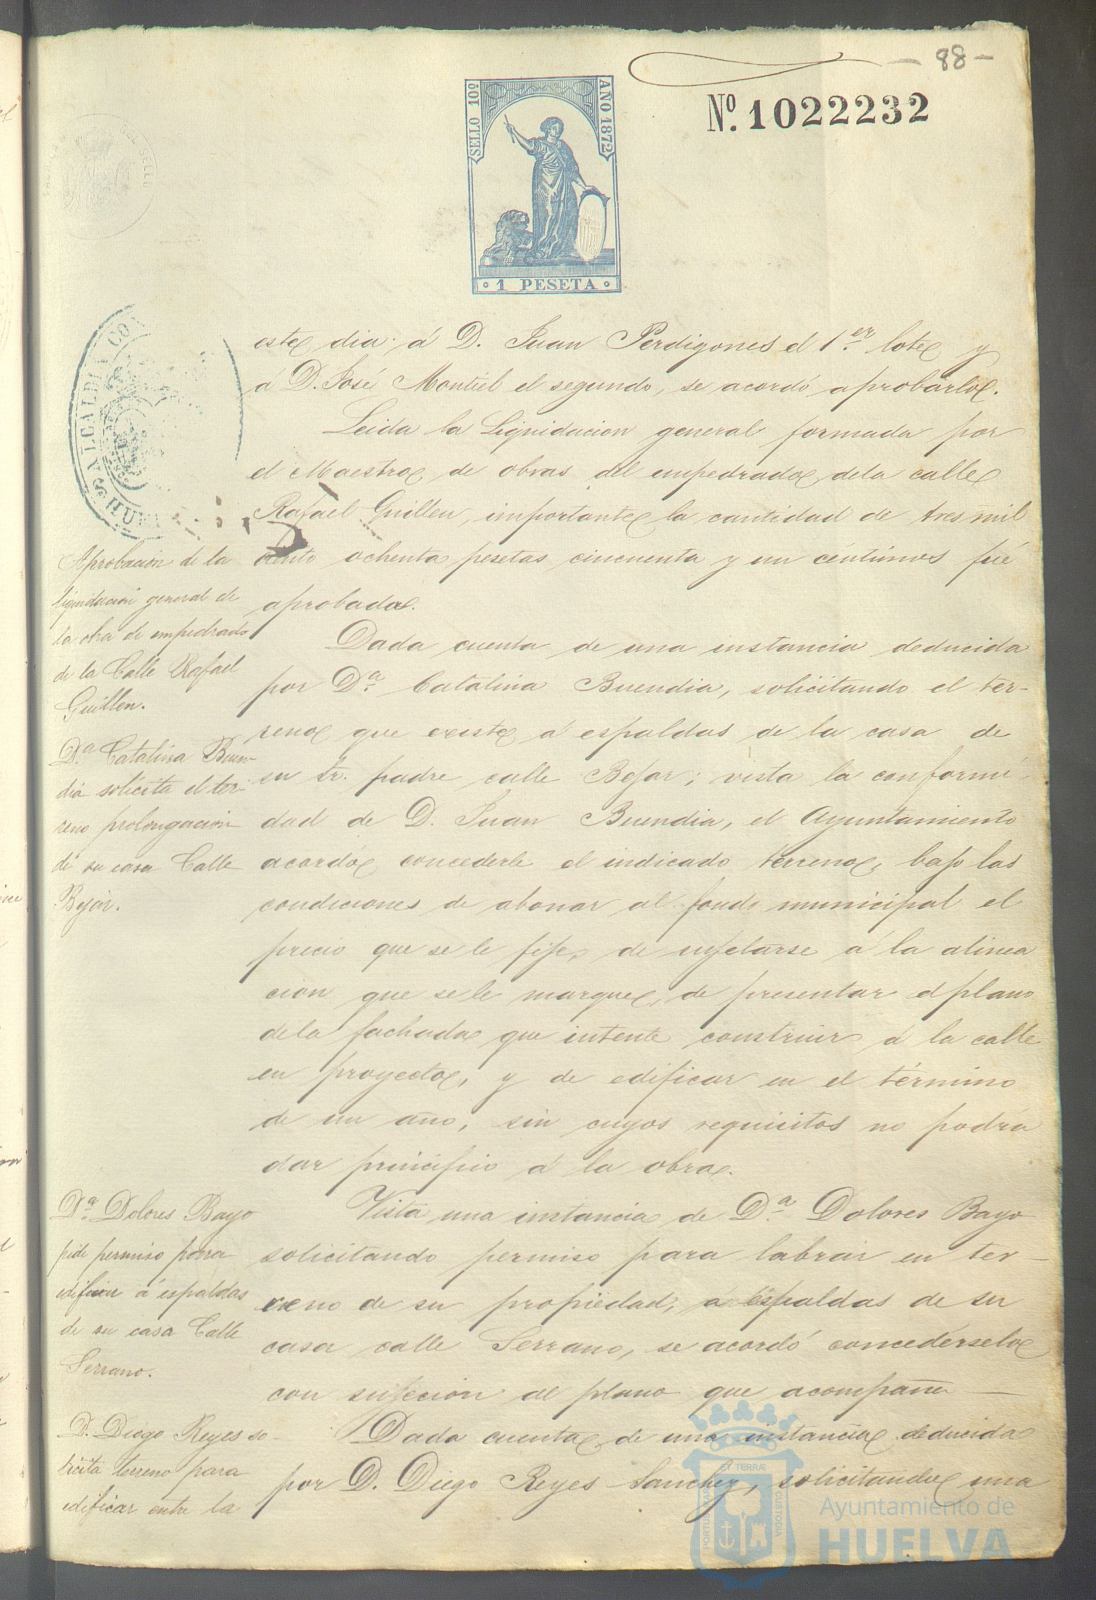 - 88 -
Nº. 1022232
SELLO 10º
AÑO 1872
1 PESETA
ALCALDIA CO
HUE
este dia á D. Juan Perdigones el 1.er lote y
á D. José Montiel el segundo, se acordó aprobarlo.
Leida la liquidacion general formada por
el Maestro de obras del empedrado de la calle
Rafael Guillen, importante la cantidad de tres mil
ciento ochenta pesetas cincuenta y un céntimos fué
aprobada.
Aprobacion de la
liquidacion general de
la obra de empedrado
de la Calle Rafael
Guillen.
Dada cuenta de una instancia deducida
por D.ª Catalina Buendia, solicitando el ter-
reno que existe á espaldas de la casa de
su Sr. padre calle Bejar; vista la conformi-
dad de D. Juan Buendia, el Ayuntamiento
acordó concederle el indicado terreno, bajo las
condiciones de abonar al fondo municipal el
precio que se le fije, de sujetarse á la alinea
cion que se le marque, de presentar el plano
de la fachada que intente construir á la calle
en proyecto, y de edificar en el término
de un año, sin cuyos requisitos no podrá
dar principio á la obra.
D.ª Catalina Buen-
dia solicita el ter-
reno prolongacion
de su casa Calle
Bejar.
Vista una instancia de D.ª Dolores Bayo
solicitando permiso para labrar en ter-
reno de su propiedad, a espaldas de su
casa calle Serrano, se acordó concedérselo
con sujecion al plano que acompaña
D.ª Dolores Bayo
pide permiso para
edificar á espaldas
de su casa Calle
Serrano.
Dada cuenta de una instancia deducida
por D. Diego Reyes Sanchez, solicitando una
D. Diego Reyes so-
licita terreno para
edificar entre la
Ayuntamiento de
HUELVA